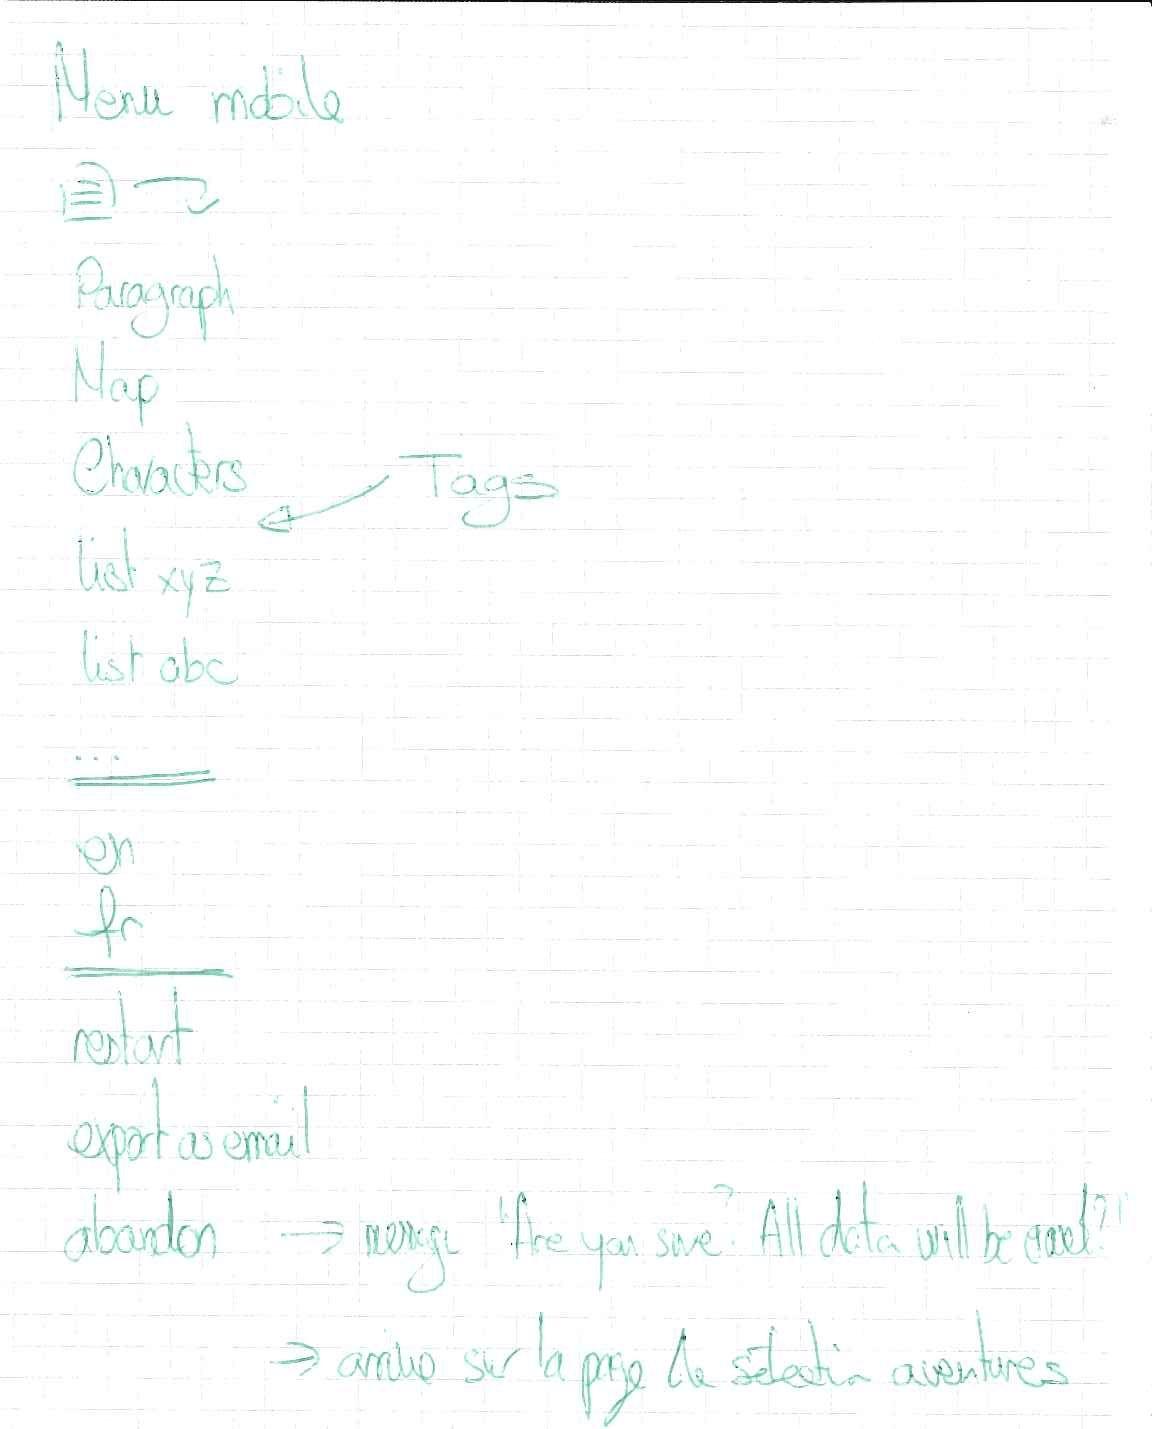 Menu mobile
Paragraph
Map
Characters
Tags
list xyz
list abc
...
en
fr
restart
export as email
abandon → message "Are you sure? All data will be erased?"
→ arrive sur la page de sélection aventures